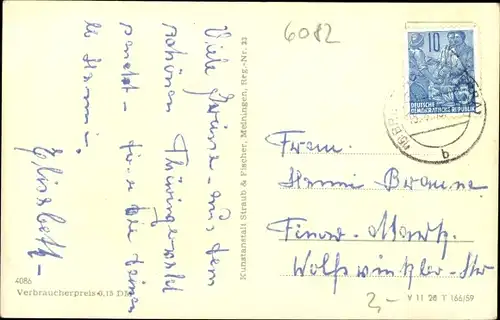 6082
10
DEUTSCHE
DEMOKRATISCHE REPUBLIK
b
Viele Grüsse aus dem
schönen Thüringerwald
sendet - für die
Hanni,
Elisabeth
Kunstanstalt Straub & Fischer, Meiningen, Reg.-Nr. 33
Frau
Hanni Braune
Finow-Mark
Wolfswinkler-Str
4086
Verbraucherpreis 0,15 DM
2,-
V 11 28 T 166/59